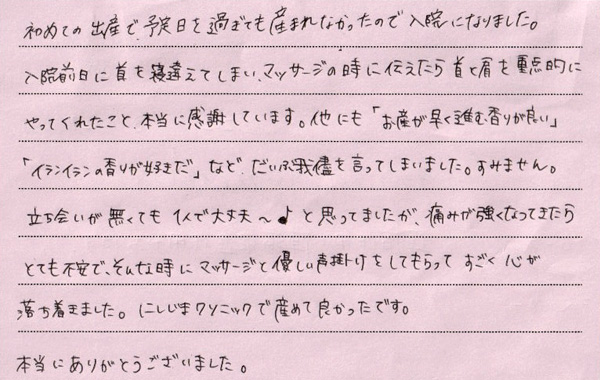 初めての出産で、予定日を過ぎても産まれなかったので入院になりました。
入院前日に首を寝違えてしまい、マッサージの時に伝えたら首と肩を重点的に
やってくれたこと、本当に感謝しています。他にも「お産が早く進む香りが良い」
「イランイランの香りが好きだ」など、だいぶ我儘を言ってしまいました。すみません。
立ち会いが無くても1人で大丈夫〜♪と思ってましたが、痛みが強くなってきたら
とても不安で、そんな時にマッサージと優しい声掛けをしてもらってすごく心が
落ち着きました。にしじまクリニックで産めて良かったです。
本当にありがとうございました。